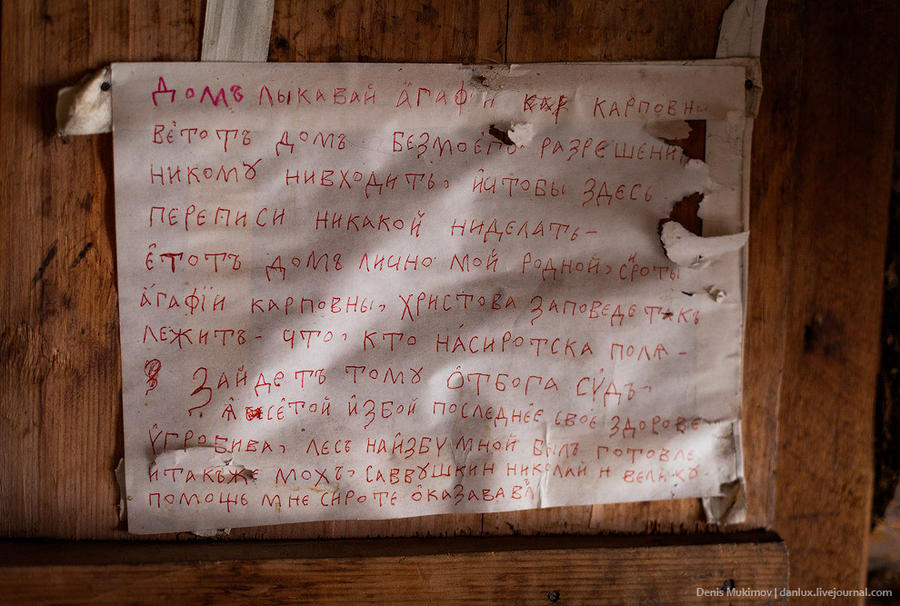 домъ лыкавай а҆гафїи карповны
ве҆тотъ домъ безмоего разрешени
никомꙋ нивходить, и҆чтобы здесь
переписи никакой ниделать-
е҆тотъ домъ лично мой родной, сироты
а҆гафїи карповны, христова заповедетакъ
лежить- что, кто на́сиротска поля-
зайдетъ томꙋ о҆тбога сꙋдъ,
ꙗ҆ се҆той и҆збой последнее свое здорове
ᲂу҆гробива, лесъ наи҆збу мной былъ готовле
и҆такъже мохъ, саввꙋшкин николай и велику-
помоще мне сироте о҆казавава
Denis Mukimov | danlux.livejournal.com